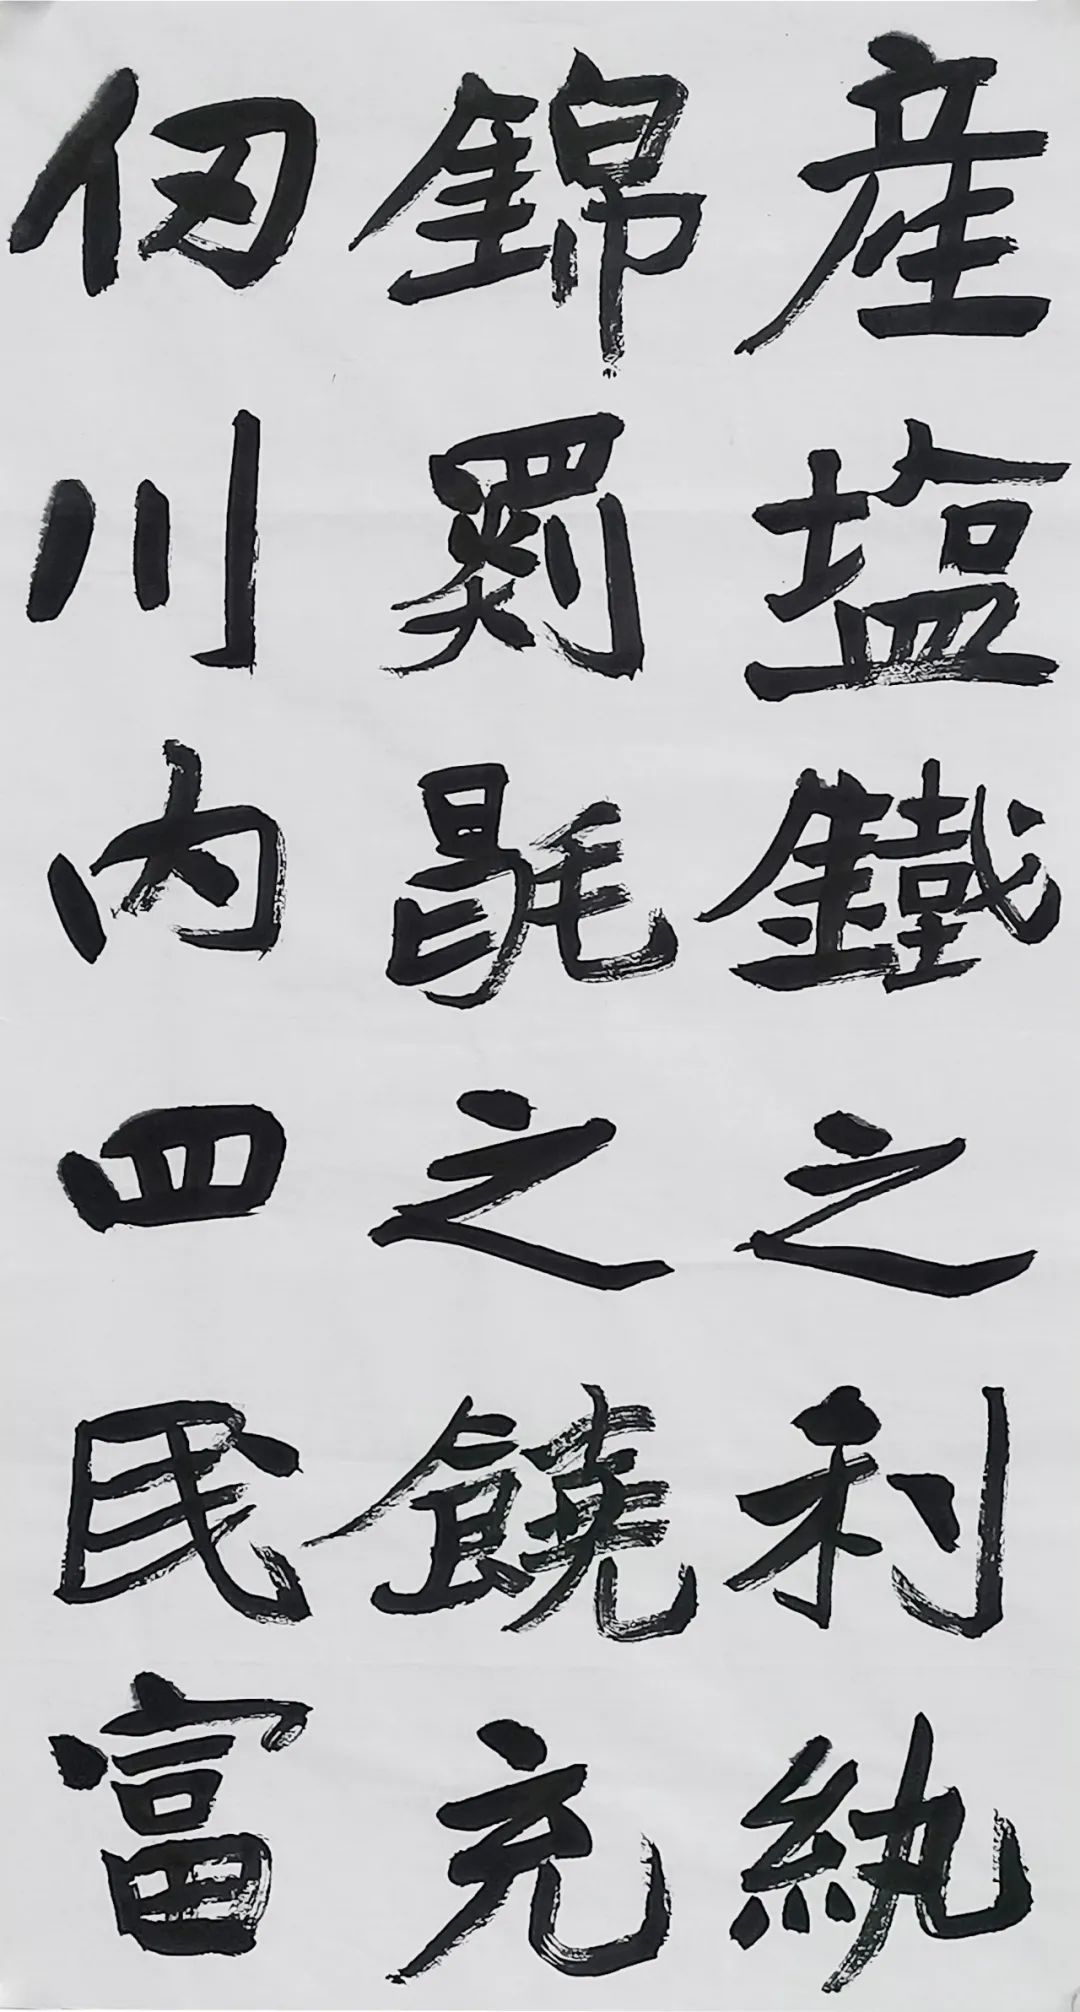 産塩鐵之利紈
錦罽毼之饒充
仞川内四民富